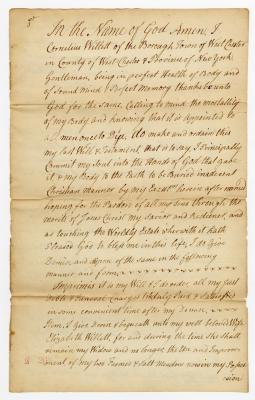 In the Name of God Amen, I
Cornelius Willett of the Borough Town of West Chester
in County of West Chester & Province of New York
Gentleman, being in perfect Health of Body and
of Sound Mind & Perfect Memory thanks be unto
God for the Same, Calling to mind the mortality
of my Body and knowing that it is Appointed to
all men once to Dye, do make and ordain this
my Last Will & Testament, that is to Say Principally
Commit my Soul into the Hands of God that gave
it & my Body to the Earth to be Buried in decent
Christian manner by my Execrs herein after named
hoping for the Pardon of all my Sins through the
merits of Jesus Christ my Savior and Redeemer, and
as touching the Worldly Estate wherewith it hath
Pleased God to bless me in this life, I do Give
Demise and dispose of the same in the following
manner and form
Imprimis it is my Will & I do order, all my just
Debts & Funeral Charges be duly Paid & Satisfied
in some convenient time after my Decease
Item, I Give Demise & bequeath unto my well beloved Wife
Elizabeth Willett, for and during the time She shall
remain my Widow and no longer the Use and Improve
ment of my two Farms & Salt Meadow now in my Posses
sion